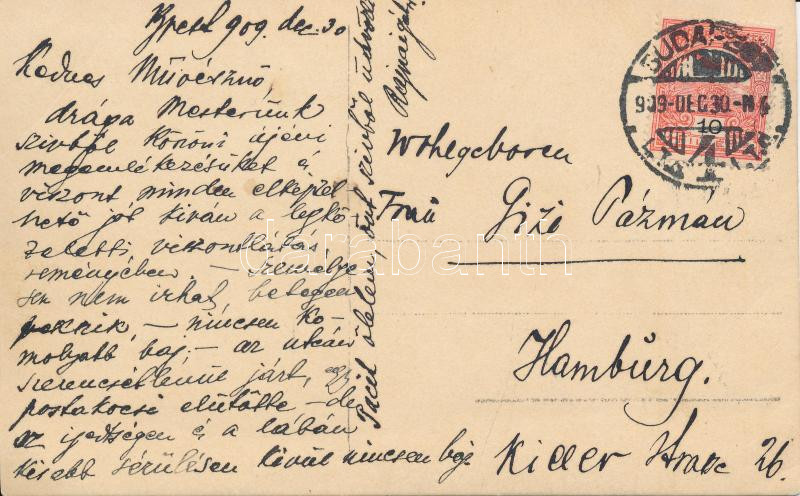 Bpest 909 dec. 30
Kedves Művésznő,
drága Mesterünk
szivből köszöni újévi
megemlékezésüket és
viszont minden elképzel-
hető jót kiván a legkö-
zelebbi viszontlátás
reményében. – Szemelye-
sen nem irhat, betegen
fekszik, – nincsen ko-
molyabb baj, – az utcán
szerencsétlenül járt, egy
postakocsi elütötte – de
az ijedtségen és a lábán
kisebb sérülésen kivül nincsen baj.
Pacit ölelem, önt szivből üdvözli
Wohlgeboren
Frau Gizi Pázmán
Hamburg.
Kieler Strasse 26.
BUDAPEST
909 DEC 30
10
darabanth